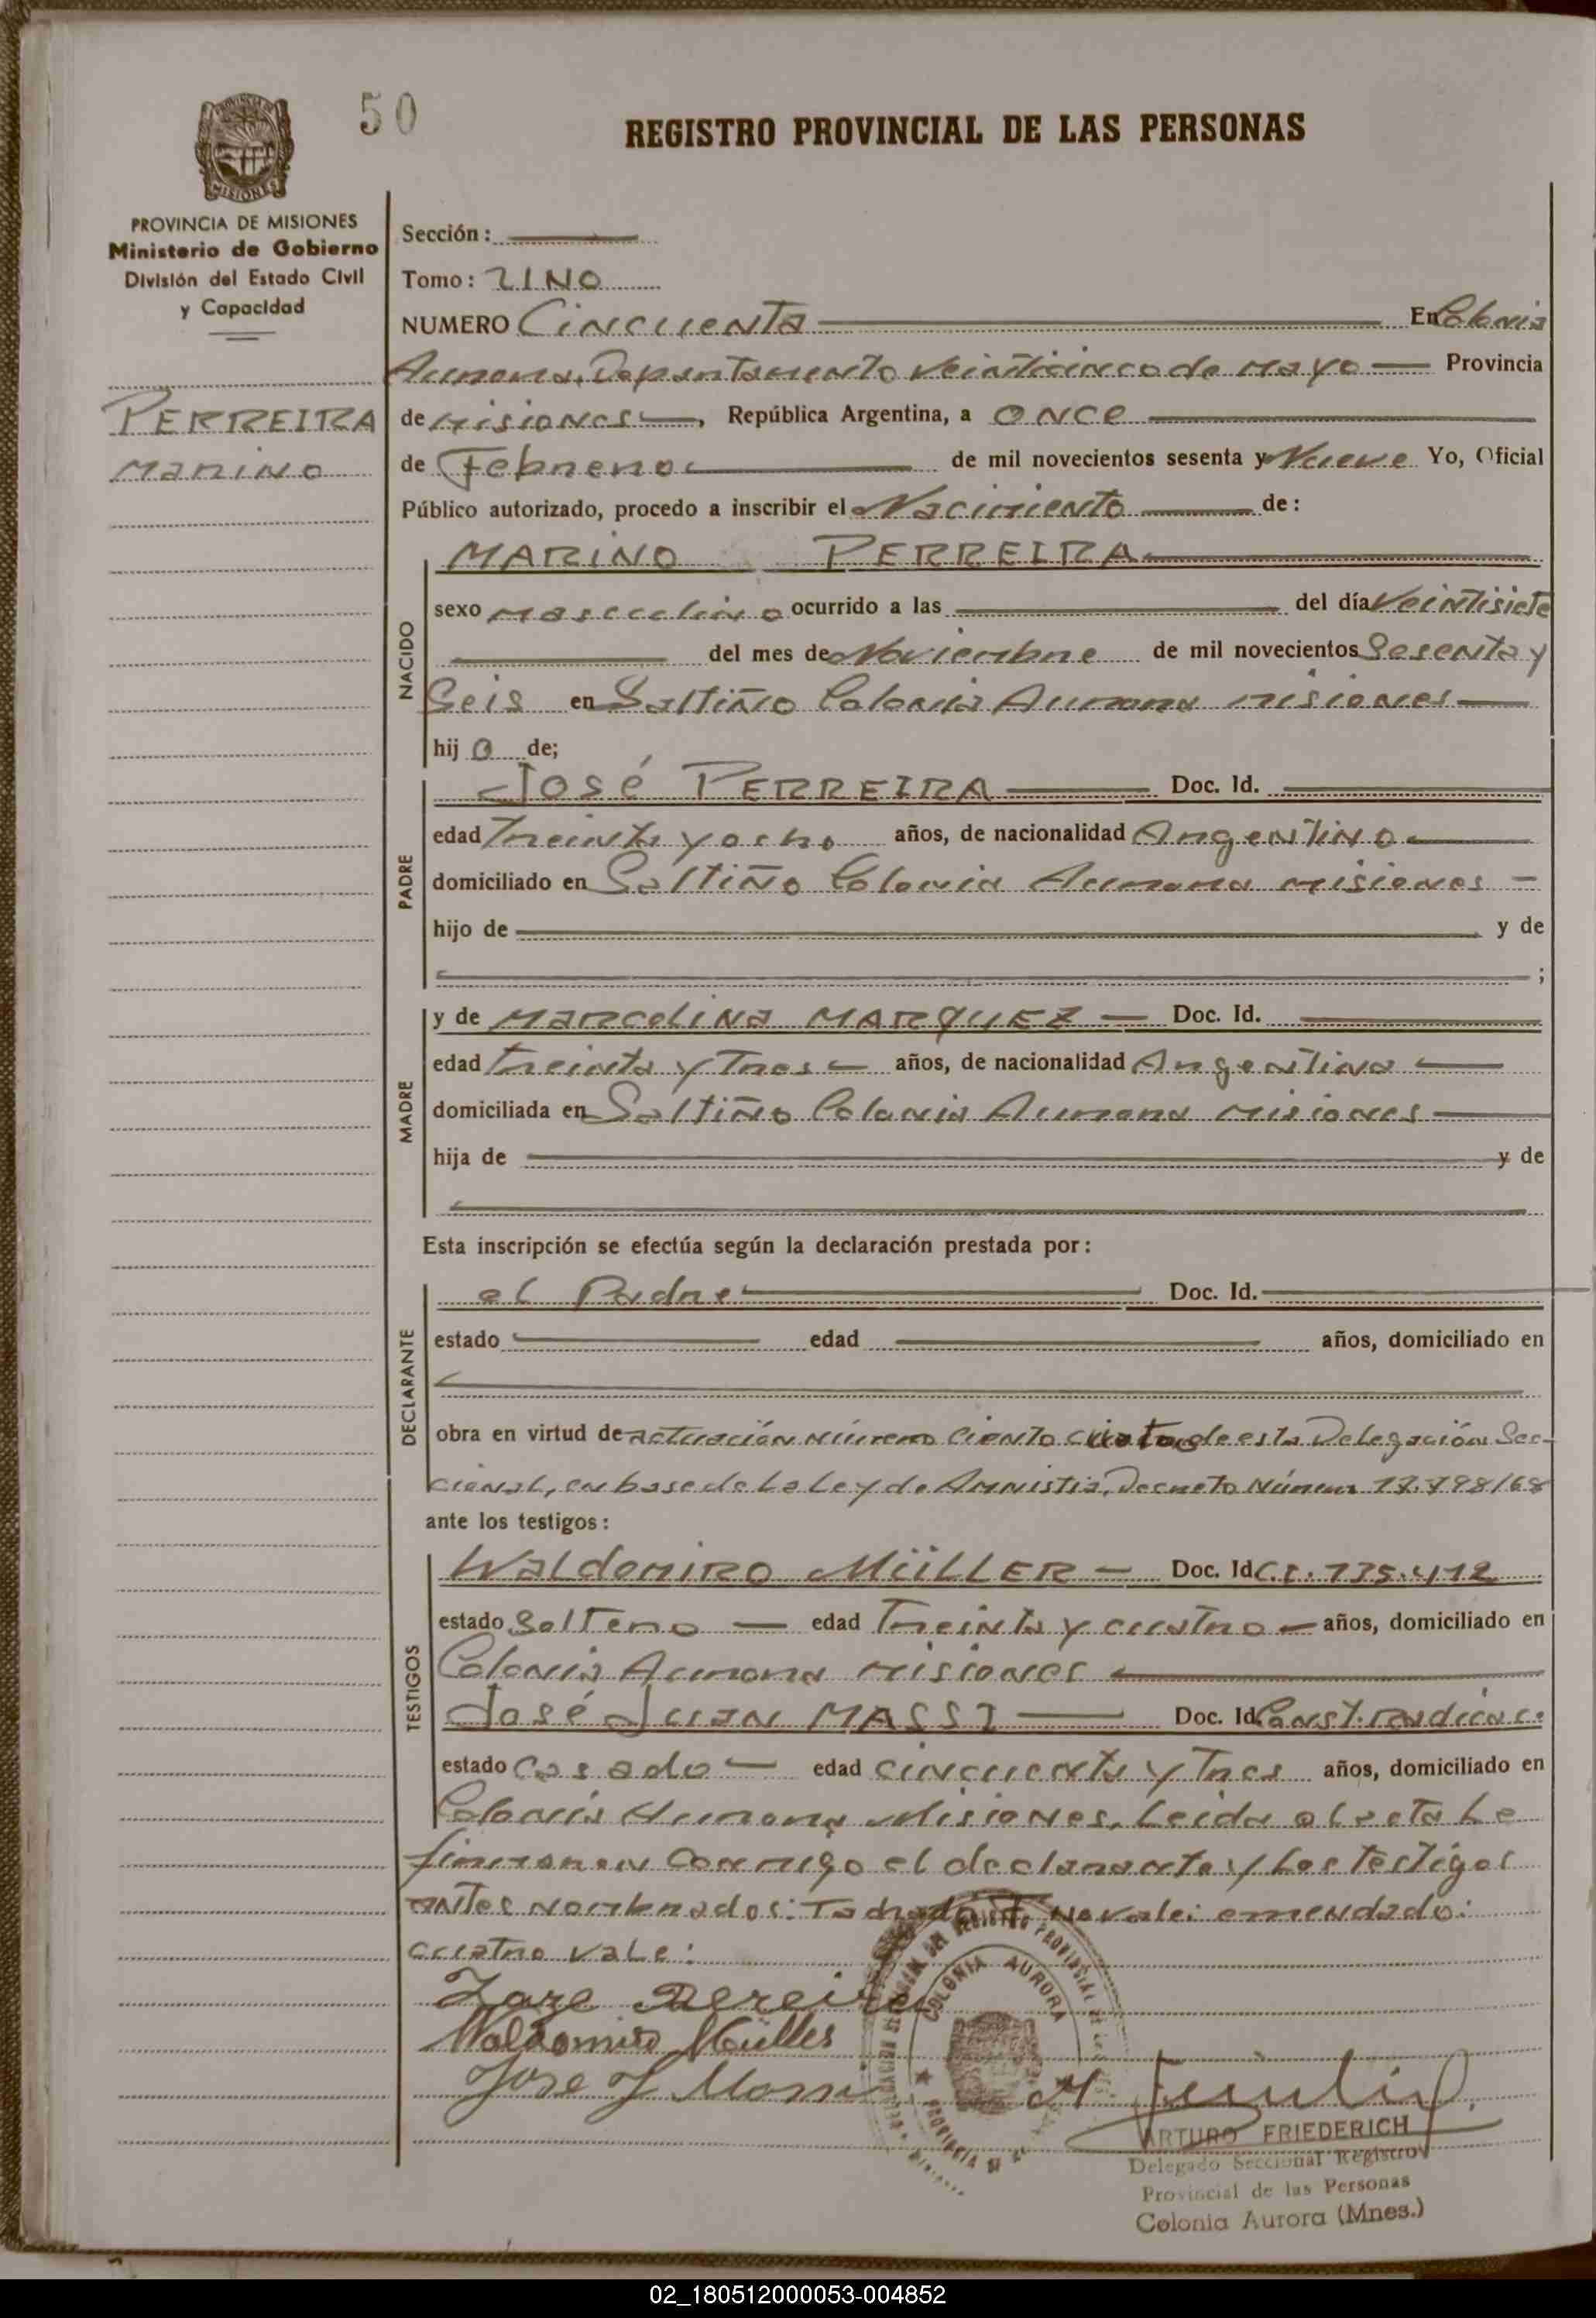 50
REGISTRO PROVINCIAL DE LAS PERSONAS
PROVINCIA DE MISIONES
Ministerio de Gobierno
División del Estado Civil
y Capacidad
PERREIRA
Marino
Sección:
Tomo: UNO
NUMERO Cincuenta En Colonia
Aurora, Departamento Veinticinco de Mayo Provincia
de Misiones, República Argentina, a ONCE
de Febrero de mil novecientos sesenta y Nueve Yo, Oficial
Público autorizado, procedo a inscribir el Nacimiento de:
NACIDO
MARINO PERREIRA
sexo Masculino ocurrido a las del día Veintisiete
del mes de Noviembre de mil novecientos Sesenta y
Seis en Saltiño Colonia Aurora Misiones
hijo de;
PADRE
José PERREIRA Doc. Id.
edad Treinta y ocho años, de nacionalidad Argentino
domiciliado en Saltiño Colonia Aurora Misiones
hijo de y de
;
MADRE
y de Marcelina MARQUEZ Doc. Id.
edad Treinta y Tres años, de nacionalidad Argentina
domiciliada en Saltiño Colonia Aurora Misiones
hija de y de
Esta inscripción se efectúa según la declaración prestada por:
DECLARANTE
el Padre Doc. Id.
estado edad años, domiciliado en
obra en virtud de actuación número Ciento cuatro de esta Delegación Sec-
cional, en base de la Ley de Amnistia, Decreto Número 17.798/68
ante los testigos:
TESTIGOS
Waldomiro MüLLER Doc. Id C.I. 135.412
estado Soltero edad Treinta y cuatro años, domiciliado en
Colonia Aurora Misiones
José Juan MASSI Doc. Id Const. radicac.
estado Casado edad cincuenta y Tres años, domiciliado en
Colonia Aurora Misiones. Leida el acta la
firmaron conmigo el declarante y los testigos
antes nombrados: Tachado: No vale: emendado:
cuatro vale:
Joze Pereira
Waldomiro Müller
Jose J Massi
COLONIA AURORA
ARTURO FRIEDERICH
Delegado Seccional Registro
Provincial de las Personas
Colonia Aurora (Mnes.)
02_180512000053-004852